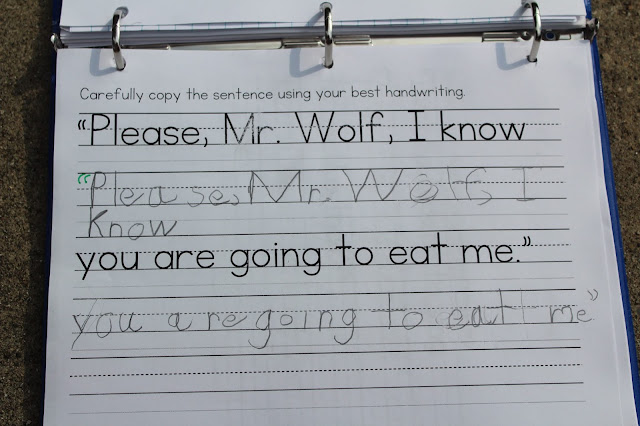 Carefully copy the sentence using your best handwriting.
“Please, Mr. Wolf, I know
“Please, Mr. Wolf, I
know
you are going to eat me.”
you are going to eat me”